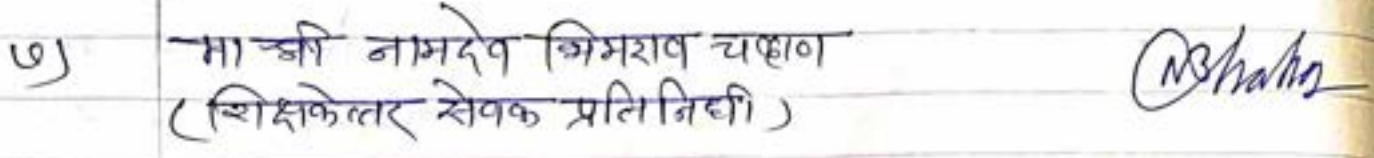 ७) मा श्री नामदेव भिमराव चव्हाण
(शिक्षकेत्तर सेवक प्रतिनिधी)